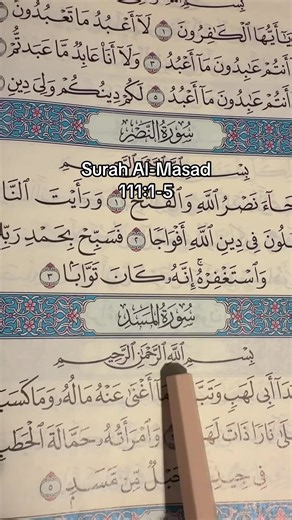 يَٰٓأَيُّهَا ٱلْكَٰفِرُونَ ١ لَآ أَعْبُدُ مَا تَعْبُدُونَ
أَنتُمْ عَٰبِدُونَ مَآ أَعْبُدُ ٣ وَلَآ أَنَا۠ عَابِدٌ مَّا عَبَدتُّمْ
أَنتُمْ عَٰبِدُونَ مَآ أَعْبُدُ ٥ لَكُمْ دِينُكُمْ وَلِيَ دِينِ
سُورَةُ النَّصْرِ
Surah Al-Masad
111:1-5
بِسْمِ
جَآءَ نَصْرُ ٱللَّهِ وَٱلْفَتْحُ ١ وَرَأَيْتَ ٱلنَّا
لُونَ فِي دِينِ ٱللَّهِ أَفْوَاجًا ٢ فَسَبِّحْ بِحَمْدِ رَبِّكَ
وَٱسْتَغْفِرْهُ ۚ إِنَّهُۥ كَانَ تَوَّابًۢا ٣
سُورَةُ المَسَدِ
بِسْمِ ٱللَّهِ ٱلرَّحْمَٰنِ ٱلرَّحِيمِ
يَدَآ أَبِي لَهَبٍ وَتَبَّ مَآ أَغْنَىٰ عَنْهُ مَالُهُۥ وَمَا كَسَبَ
نَارًا ذَاتَ لَهَبٍ وَٱمْرَأَتُهُۥ حَمَّالَةَ ٱلْحَطَبِ
فِي جِيدِهَا حَبْلٌ مِّن مَّسَدٍۭ ٥